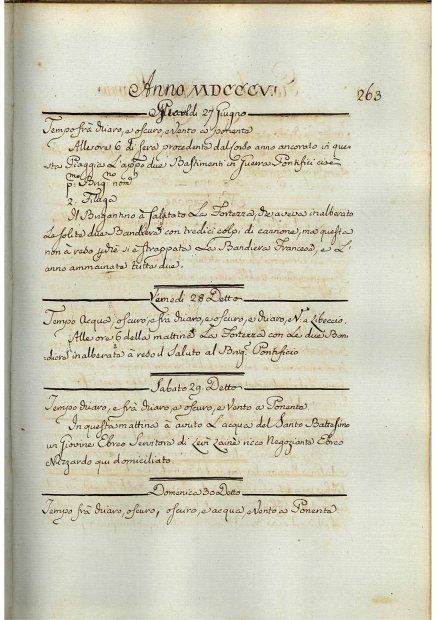 Anno MDCCCV.
263
Giovedi 27 Giugno
Tempo frà chiaro, e oscuro, e Vento a ponente
Alle ore 6 di sera procedenti dal Sodo anno ancorato in que
sta Piaggia L'appo due Bastimenti in Guerra Pontifici cioè
p: Brig: nom:
2. Filaga
Il Brigantino à Salutato La Fortezza, che aveva inalberato
Le solite due Bandiere con tredici colpi di cannone, ma questa
non à reso perche si è strappata La Bandiera Francese, e L'
anno ammainate tutta due.
Venerdi 28 Detto
Tempo Acqua, oscuro, e frà chiaro, e oscuro, e chiaro, e V.º a Libeccio.
Alle ore 6 della mattina La Fortezza con Le due Ban
diere inalberate à reso il Saluto al Brig: Pontificio
Sabato 29. Detto
Tempo chiaro, e frà chiaro, e oscuro, e Vento a Ponente
In questa mattina à avuto L'acqua del Santo Battesimo
un Giovine Ebreo Servitore di ricco Negoziante Ebreo
Nizzardo qui domiciliato
Domenica 30 Detto
Tempo frà chiaro, oscuro, oscuro, e acqua e Vento a Ponente